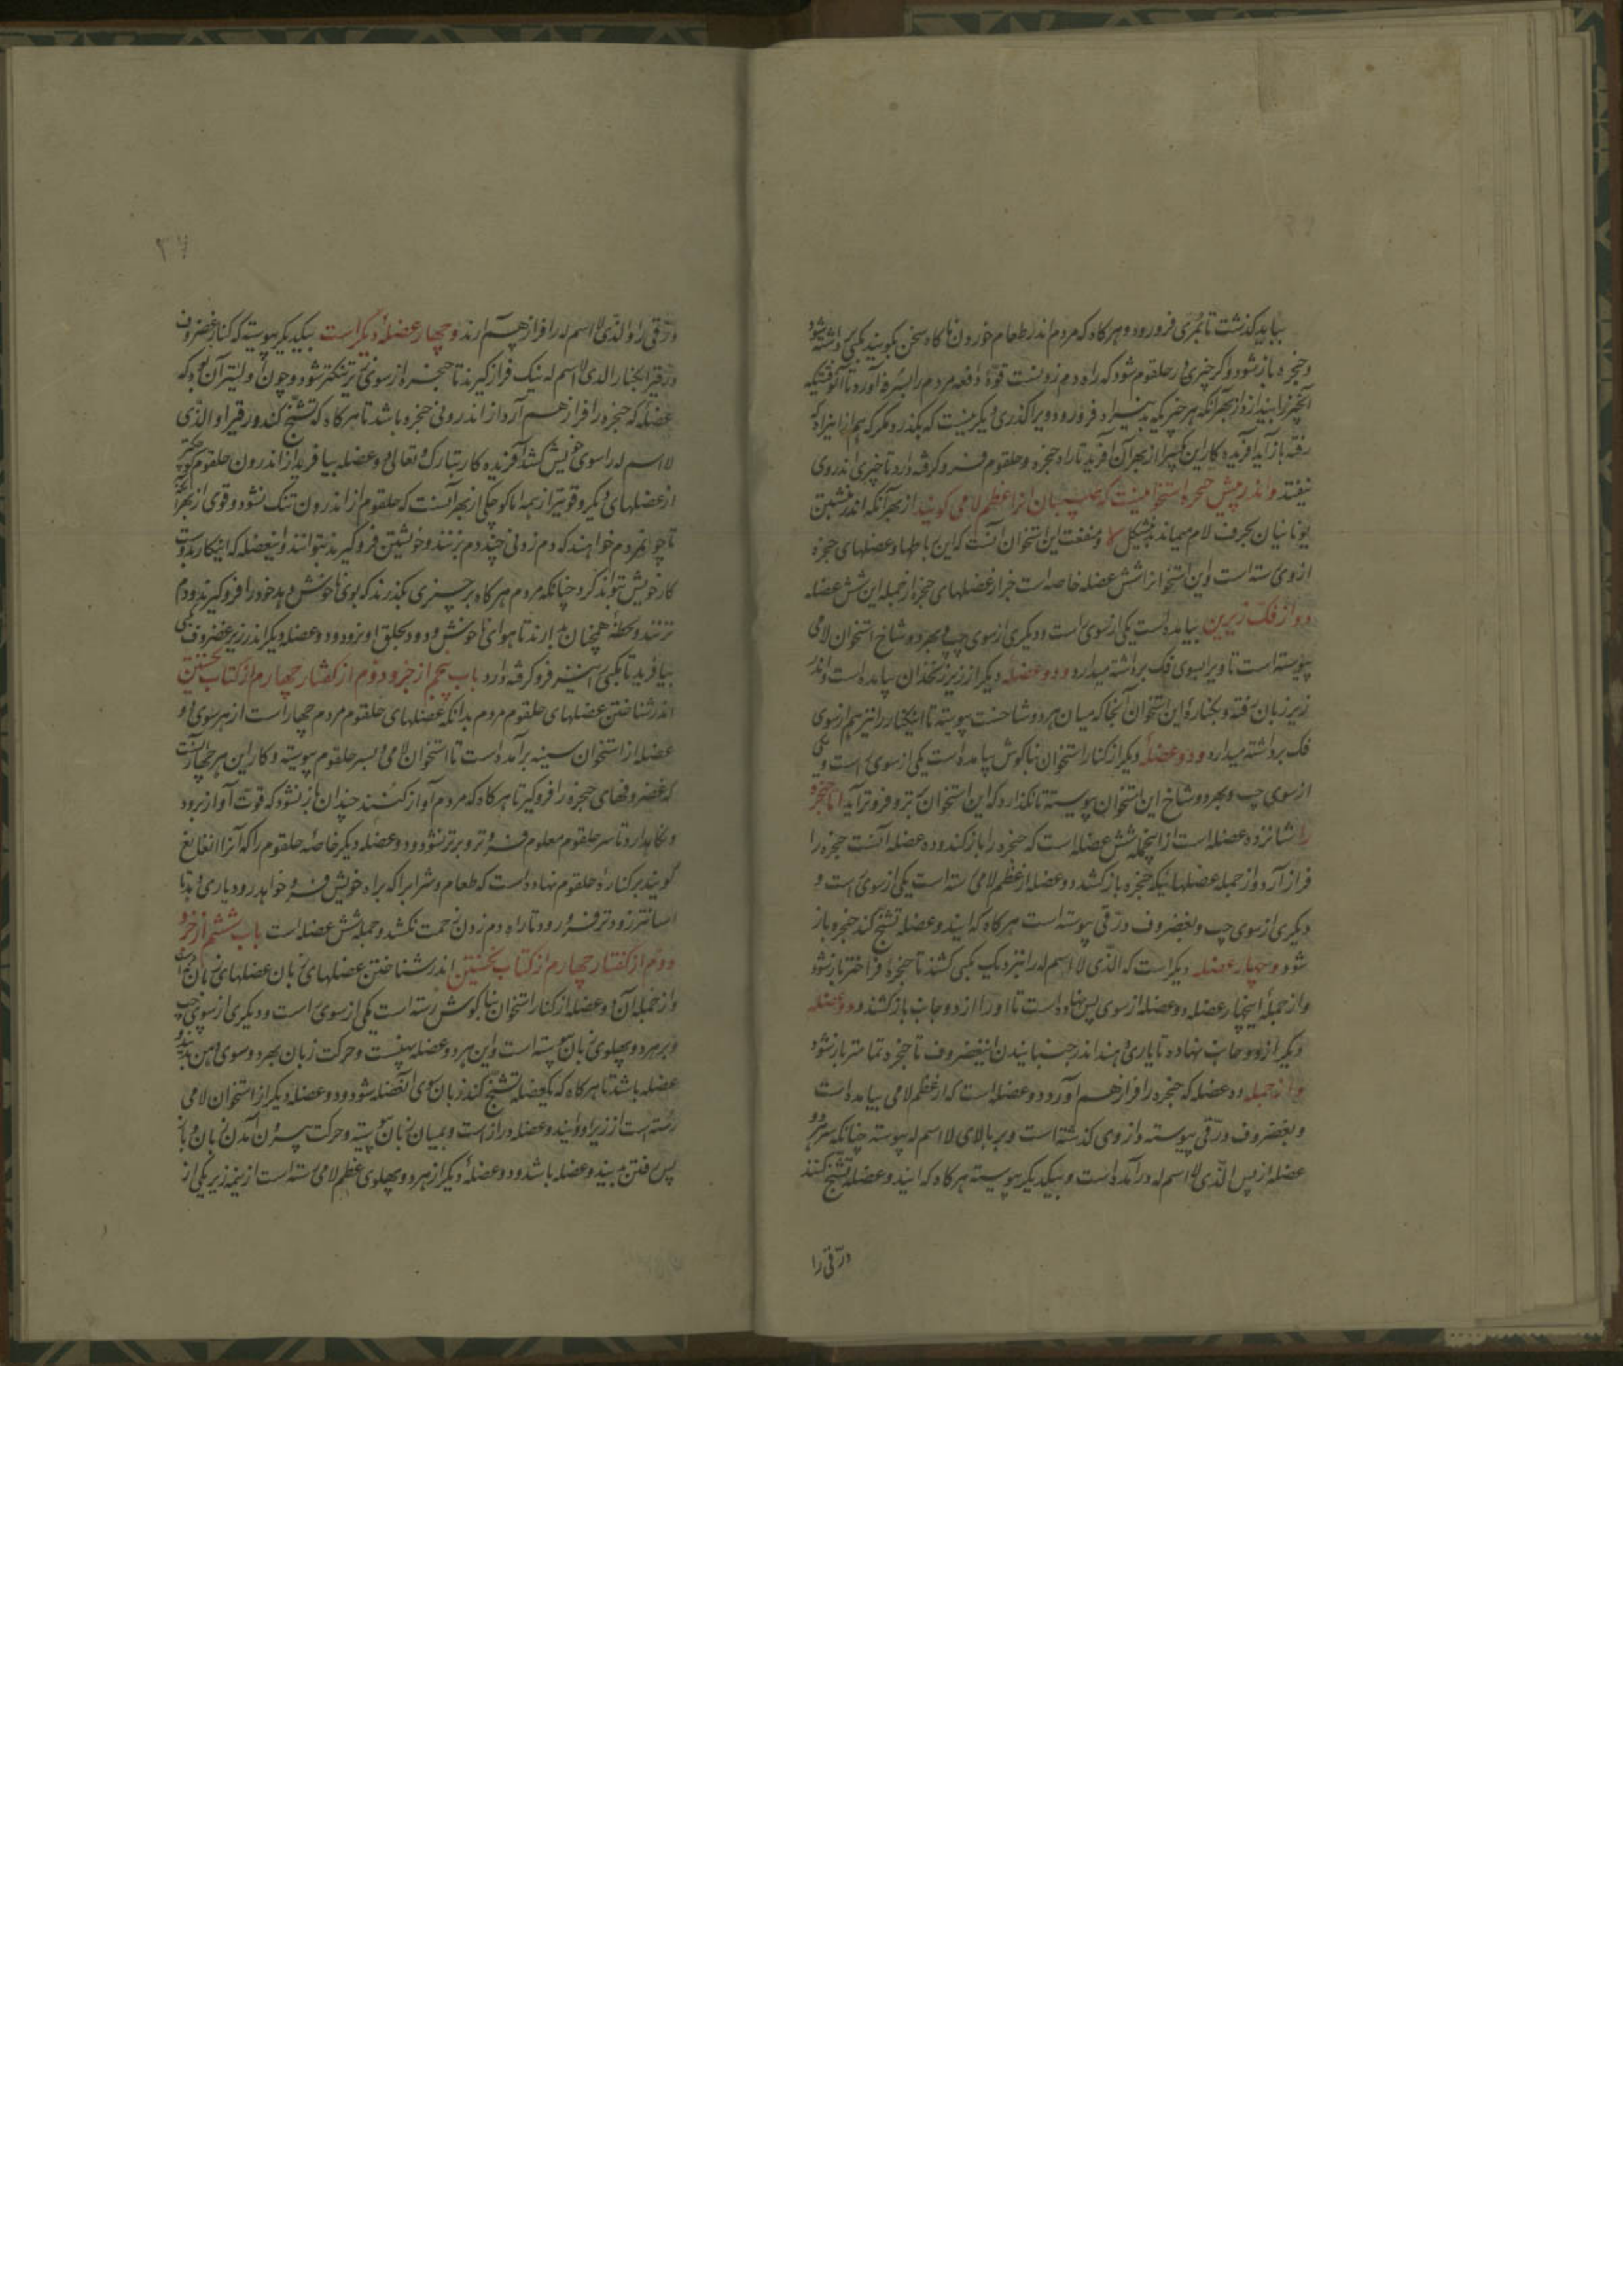 بباید گذشت تا بمری فرو رود و هرگاه که مردم اندر طعام خوردن ناگاه سخن بگویند مکبی برداشته شود
و حنجره باز شود و اگر چیزی در حلقوم شود که راه دم زدنست قوة دافعه مردم را بسرفه آورد تا آنوقتیکه
آنچیز را بیندازد از بهر آنکه هر چیز که بدین راه فرو رود ویرا گذری دیگر نیست که بگذرد مگر که هم از این راه که
رفته باز آید آفریدگار این مکبی را از بهر آن آفرید تا راه حنجره و حلقوم فرو گرفته دارد تا چیزی اندر وی
نیفتد و اندر پیش حنجره استخوانیست که طبیبان آنرا عظم لامی گویند از بهر آنکه اندر نبشتن
یونانیان بحرف لام میماند بدین شکل و منفعت این استخوان آنست که این رباطها و عضلهای حنجره
از وی رسته است و این استخوان را شش عضله خاصه است جز از عضلهای حنجره از جمله این شش عضله
دو از فک زیرین بیامده است یکی از سوی راست و دیگری از سوی چپ و بهر دو شاخ استخوان لامی
پیوسته است تا ویرا بسوی فک برداشته میدارد و دو عضله دیگر از زیر زنخدان بیامده است و اندر
زیر زبان رفته و بکناره این استخوان آنجا که میان هر دو شاخست پیوسته تا این کنار را نیز هم از سوی
فک برداشته میدارد و دو عضله دیگر از کنار استخوان بناگوش بیامده است یکی از سوی راست و یکی
از سوی چپ و بهر دو شاخ این استخوان پیوسته تا نگذارد که این استخوان برتر و فروتر آید اما حنجره
را شانزده عضله است از اینجمله شش عضله است که حنجره را باز کند و ده عضله آنست حنجره را
فراز آرد و از جمله عضلهائیکه حنجره باز کشد دو عضله از عظم لامی رسته است یکی از سوی راست و
دیگری از سوی چپ و بغضروف درقی پیوسته است هرگاه که ایندو عضله تشنج کند حنجره باز
شود و چهار عضله دیگر است که الذی لا اسم له را نزدیک مکبی کشند تا حنجره فراختر باز شود
و از جمله اینچهار عضله دو عضله از سوی پس نهاده است تا او را از دو جانب باز کشند و دو عضله
دیگر از دو جانب نهاده تا یاری دهند اندر جنبانیدن این غضروف تا حنجره تمامتر باز شود
و از جمله ده عضله که حنجره را فراز هم آورد دو عضله است که از عظم لامی بیامده است
و بغضروف درقی پیوسته و از وی گذشته است و بر بالای لا اسم له پیوسته چنانکه سر هر دو
عضله از پس الذی لا اسم له در آمده است و بیکدیگر پیوسته هرگاه که ایندو عضله تشنج کنند
درقی را
۳۷
درقی را و الذی لا اسم له را فراز هم آرند و چهار عضله دیگر است بیکدیگر پیوسته که کنار غضروف
درقی را بکنار الذی لا اسم له نیک فراز گیرند تا حنجره از سوی زیر تنگتر شود و چون اولیتر آن بود که
عضله که حنجره را فراز هم آرد از اندرونی حنجره باشد تا هرگاه که تشنج کند درقی را و الذی
لا اسم له را سوی خویش کشد آفریدگار تبارک و تعالی دو عضله بیافرید از اندرون حلقوم کوچکتر
از عضلهای دیگر و قویتر از همه اما کوچکی از بهر آنست که حلقوم از اندرون تنگ نشود و قوی از بهر آنکه
تا چون مردم خواهند که دم زدنی چند دم نزنند و خویشتن فرو گیرند بتوانند و این عضله که اینکار بدوست
کار خویش تواند کرد چنانکه مردم هرگاه بر چیزی بگذرند که بوی ناخوش دهد خود را فرو گیرند و دم
نزنند و لحظه همچنان بدارند تا هوای ناخوش و دود بحلق او نرود و دو عضله دیگر اندر زیر غضروف مکبی
بیافرید تا مکبی را نیز فرو گرفته دارد باب پنجم از جزو دوم از گفتار چهارم از کتاب نخستین
اندر شناختن عضلهای حلقوم مردم بدانکه عضلهای حلقوم مردم چهار است از هر سوی دو
عضله از استخوان سینه برآمده است تا استخوان لامی و بسر حلقوم پیوسته و کار این هر چهار آنست
که غضروفهای حنجره را فرو گیر تا هرگاه که مردم آواز کنند چندان باز نشود که قوت آواز برود
و نگاهدارد تا سر حلقوم معلوم فروتر و برتر نشود و دو عضله دیگر خاصه حلقوم را که آنرا نغانغ
گویند بر کناره حلقوم نهاده است که طعام و شراب را که براه خویش فرو خواهد رود یاری دهد تا
آسانتر و زودتر فرو رود تا راه دم زدن زحمت نکشد و جمله شش عضله است باب ششم از جزو
دوم از گفتار چهارم از کتاب نخستین اندر شناختن عضلهای زبان عضلهای زبان نه است
و از جمله آن دو عضله از کنار استخوان بناگوش رسته است یکی از سوی راست و دیگری از سوی چپ
و بر هر دو پهلوی زبان پیوسته است و این هر دو عضله پهنست و حرکت زبان بهر دو سوی دهن بدیندو
عضله باشد تا هرگاه که یکعضله تشنج کند زبان سوی آنعضله شود و دو عضله دیگر از استخوان لامی
رسته است از زیر او و ایندو عضله دراز است و بمیان زبان پیوسته و حرکت بیرون آمدن زبان و باز
پس رفتن بدیندو عضله باشد و دو عضله دیگر از هر دو پهلوی عظم لامی رسته است از نیمه زیر یکی از